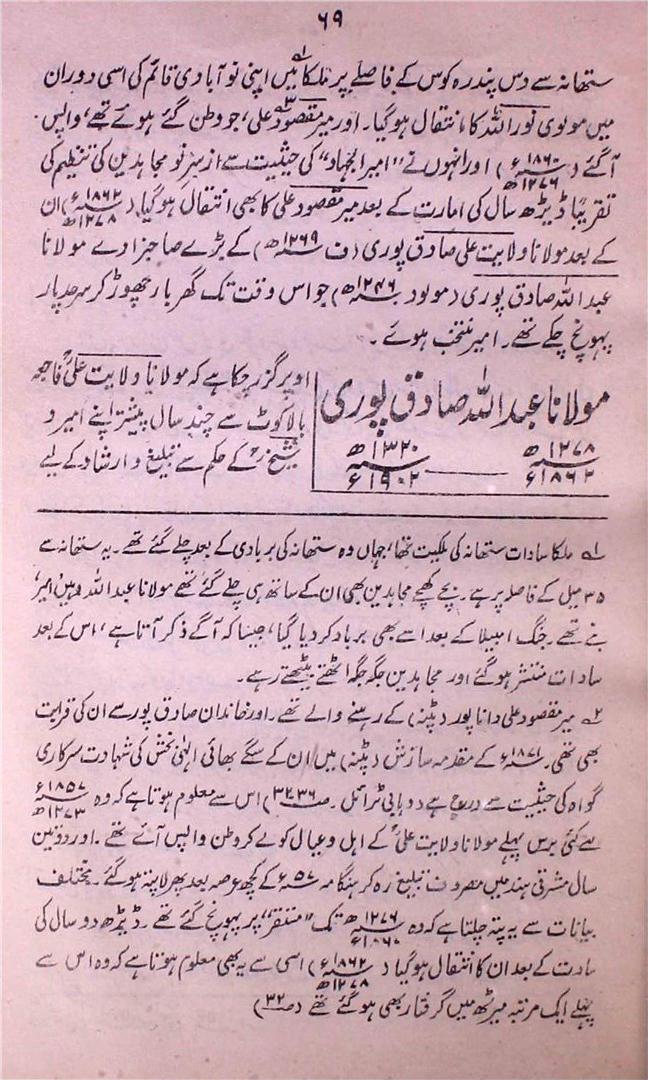 ۶۹
ستھانہ سے دس پندرہ کوس کے فاصلے پر ملکا۱؎ میں اپنی نو آبادی قائم کی اسی دوران
میں مولوی نور اللہ کا انتقال ہوگیا۔ اور میر مقصود۲؎ علی، جو وطن گئے ہوئے تھے، واپس
آگئے (۱۸۶۰ء ۱۲۷۶ھ) اور انہوں نے "امیر الجہاد" کی حیثیت سے از سرِ نو مجاہدین کی تنظیم کی
تقریباً ڈیڑھ سال کی امارت کے بعد میر مقصود علی کا بھی انتقال ہوگیا (۱۸۶۲ء ۱۲۷۸ھ) ان
کے بعد مولانا ولایت علی صادق پوری (ف ۱۲۶۹ھ) کے بڑے صاحبزادے مولانا
عبد اللہ صادق پوری (مولود ۱۲۴۶ھ) جو اس وقت تک گھر بار چھوڑ کر سرحد پار
پہونچ چکے تھے۔ امیر منتخب ہوئے۔
مولانا عبد اللہ صادق پوری
۱۲۷۸ھ ۱۸۶۲ء — ۱۳۲۰ھ ۱۹۰۲ء
اوپر گزر چکا ہے کہ مولانا ولایت علیؒ فاجعہ
بالاکوٹ سے چند سال پیشتر اپنے امیر و
شیخؒ کے حکم سے تبلیغ و ارشاد کے لیے
۱؎ ملکا سادات ستھانہ کی ملکیت تھا، جہاں وہ ستھانہ کی بربادی کے بعد چلے گئے تھے۔ یہ ستھانہ سے
۳۵ میل کے فاصلہ پر ہے۔ بچے کھچے مجاہدین بھی ان کے ساتھ ہی چلے گئے تھے مولانا عبد اللہ وہیں امیر
بنے تھے۔ جنگ امبیلا کے بعد اسے بھی برباد کر دیا گیا، جیسا کہ آگے ذکر آتا ہے، اس کے بعد
سادات منتشر ہوگئے اور مجاہدین جگہ جگہ اٹھتے بیٹھتے رہے۔
۲؎ میر مقصود علی دانا پور (پٹنہ) کے رہنے والے تھے۔ اور خاندان صادق پور سے ان کی قرابت
بھی تھی۔ ۱۸۷۱ء کے مقدمہ سازش (پٹنہ) میں ان کے سگے بھائی الٰہی بخش کی شہادت سرکاری
گواہ کی حیثیت سے درج ہے (وہابی ٹرائل۔ ص) اس سے معلوم ہوتا ہے کہ وہ ۱۸۵۷ء ۱۲۷۳ھ
سے کئی برس پہلے مولانا ولایت علیؒ کے اہل و عیال کو لے کر وطن واپس آئے تھے۔ اور دو تین
سال مشرقی ہند میں مصروف تبلیغ رہ کر ہنگامہ ۵۷ء کے کچھ عرصہ بعد پھر لاپتہ ہوگئے۔ مختلف
بیانات سے یہ پتہ چلتا ہے کہ وہ ۱۲۷۶ھ ۱۸۶۰ء تک "مستقر" پر پہونچ گئے تھے۔ ڈیڑھ دو سال کی
مارت کے بعد ان کا انتقال ہوگیا (۱۸۶۲ء ۱۲۷۸ھ) اسی سے یہ بھی معلوم ہوتا ہے کہ وہ اس سے
پہلے ایک مرتبہ میرٹھ میں گرفتار بھی ہوگئے تھے (ص۳۲)